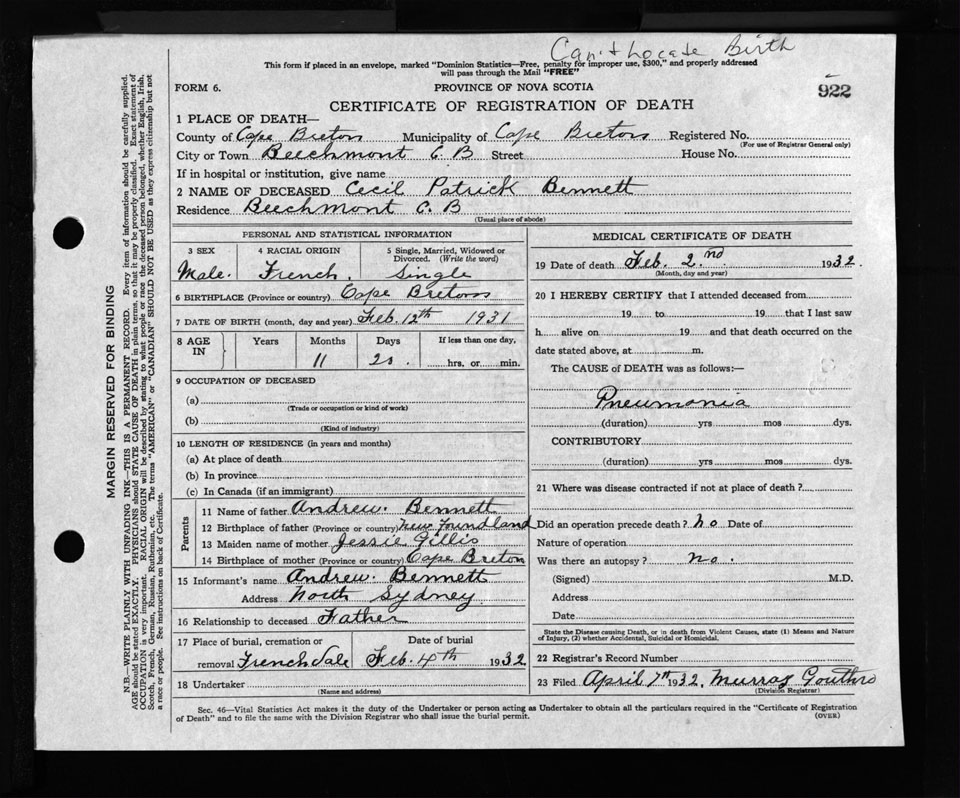 Can't Locate Birth
This form if placed in an envelope, marked "Dominion Statistics—Free, penalty for improper use, $300," and properly addressed
will pass through the Mail "FREE"
FORM 6. PROVINCE OF NOVA SCOTIA 922
CERTIFICATE OF REGISTRATION OF DEATH
1 PLACE OF DEATH—
County of Cape Breton Municipality of Cape Breton Registered No.
(For use of Registrar General only)
City or Town Beechmont C. B Street House No.
If in hospital or institution, give name
2 NAME OF DECEASED Cecil Patrick Bennett
Residence Beechmont C. B
(Usual place of abode)
PERSONAL AND STATISTICAL INFORMATION
3 SEX 4 RACIAL ORIGIN 5 Single, Married, Widowed or
Divorced. (Write the word)
Male. French. Single
6 BIRTHPLACE (Province or country) Cape Breton
7 DATE OF BIRTH (month, day and year) Feb. 12th 1931
8 AGE IN Years Months Days If less than one day,
11 21. hrs. or min.
9 OCCUPATION OF DECEASED
(a)
(Trade or occupation or kind of work)
(b)
(Kind of industry)
10 LENGTH OF RESIDENCE (in years and months)
(a) At place of death
(b) In province
(c) In Canada (if an immigrant)
Parents
11 Name of father Andrew. Bennett
12 Birthplace of father (Province or country) New Foundland
13 Maiden name of mother Jessie Gillis
14 Birthplace of mother (Province or country) Cape Breton
15 Informant's name Andrew. Bennett
Address North Sydney
16 Relationship to deceased Father
17 Place of burial, cremation or Date of burial
removal Frenchvale Feb. 4th 1932
18 Undertaker
(Name and address)
MEDICAL CERTIFICATE OF DEATH
19 Date of death Feb. 2.nd 1932.
(Month, day and year)
20 I HEREBY CERTIFY that I attended deceased from
19 to 19 that I last saw
h alive on 19 and that death occurred on the
date stated above, at m.
The CAUSE of DEATH was as follows:—
Pneumonia
(duration) yrs mos dys.
CONTRIBUTORY
(duration) yrs mos dys.
21 Where was disease contracted if not at place of death?
Did an operation precede death? no Date of
Nature of operation
Was there an autopsy? no.
(Signed) M.D.
Address
Date
State the Disease causing Death, or in death from Violent Causes, state (1) Means and Nature
of Injury, (2) whether Accidental, Suicidal or Homicidal.
22 Registrar's Record Number
23 Filed April 7th 1932. Murray Gouthro
(Division Registrar)
Sec. 46—Vital Statistics Act makes it the duty of the Undertaker or person acting as Undertaker to obtain all the particulars required in the "Certificate of Registration
of Death" and to file the same with the Division Registrar who shall issue the burial permit. (OVER)
MARGIN RESERVED FOR BINDING
N.B.—WRITE PLAINLY WITH UNFADING INK—THIS IS A PERMANENT RECORD. Every item of information should be carefully supplied.
AGE should be stated EXACTLY. PHYSICIANS should STATE CAUSE OF DEATH in plain terms, so that it may be properly classified. Exact statement of
OCCUPATION is very important. RACIAL ORIGIN will be described by stating to what people or race the deceased person belonged, whether English, Irish,
Scotch, French, German, Russian, Ruthenian, etc. The terms "AMERICAN" or "CANADIAN" SHOULD NOT BE USED as they express citizenship but not
a race or people. See instructions on back of Certificate.